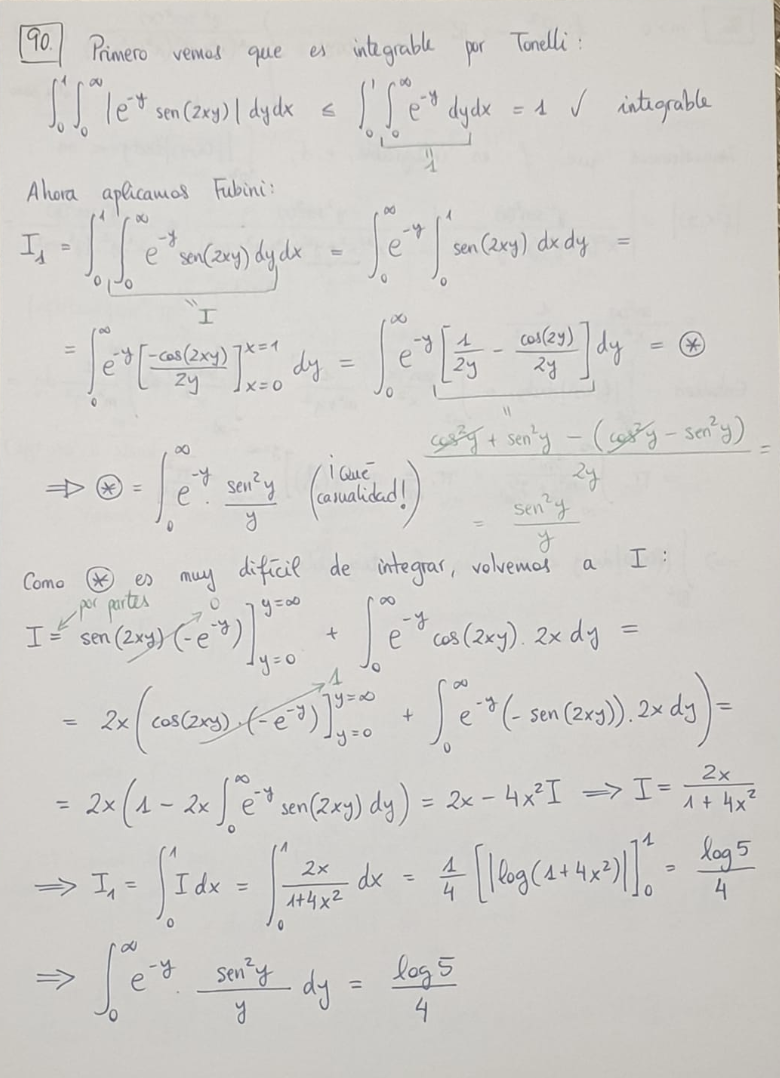 90. Primero vemos que es integrable por Tonelli:
∫₀¹ ∫₀^∞ |e^{-y} sen(2xy)| dy dx ≤ ∫₀¹ ∫₀^∞ e^{-y} dy dx = 1 ✓ integrable
"1
Ahora aplicamos Fubini:
I₁ = ∫₀¹ ∫₀^∞ e^{-y} sen(2xy) dy dx = ∫₀^∞ e^{-y} ∫₀¹ sen(2xy) dx dy =
"I
= ∫₀^∞ e^{-y} [-cos(2xy)/2y]_{x=0}^{x=1} dy = ∫₀^∞ e^{-y} [1/2y - cos(2y)/2y] dy = ⊛
" (cos²y + sen²y - (cos²y - sen²y))/2y =
⇒ ⊛ = ∫₀^∞ e^{-y} · sen²y/y (¡Qué casualidad!)
= sen²y/y
Como ⊛ es muy difícil de integrar, volvemos a I:
por partes
I = sen(2xy) (-e^{-y})]_{y=0}^{y=∞} 0 + ∫₀^∞ e^{-y} cos(2xy) · 2x dy =
= 2x (cos(2xy) · (-e^{-y})]_{y=0}^{y=∞} 1 + ∫₀^∞ e^{-y} (-sen(2xy)) · 2x dy) =
= 2x (1 - 2x ∫₀^∞ e^{-y} sen(2xy) dy) = 2x - 4x² I ⇒ I = 2x/(1 + 4x²)
⇒ I₁ = ∫₀¹ I dx = ∫₀¹ 2x/(1+4x²) dx = 1/4 [|log(1+4x²)|]₀¹ = log 5/4
⇒ ∫₀^∞ e^{-y} · sen²y/y dy = log 5/4